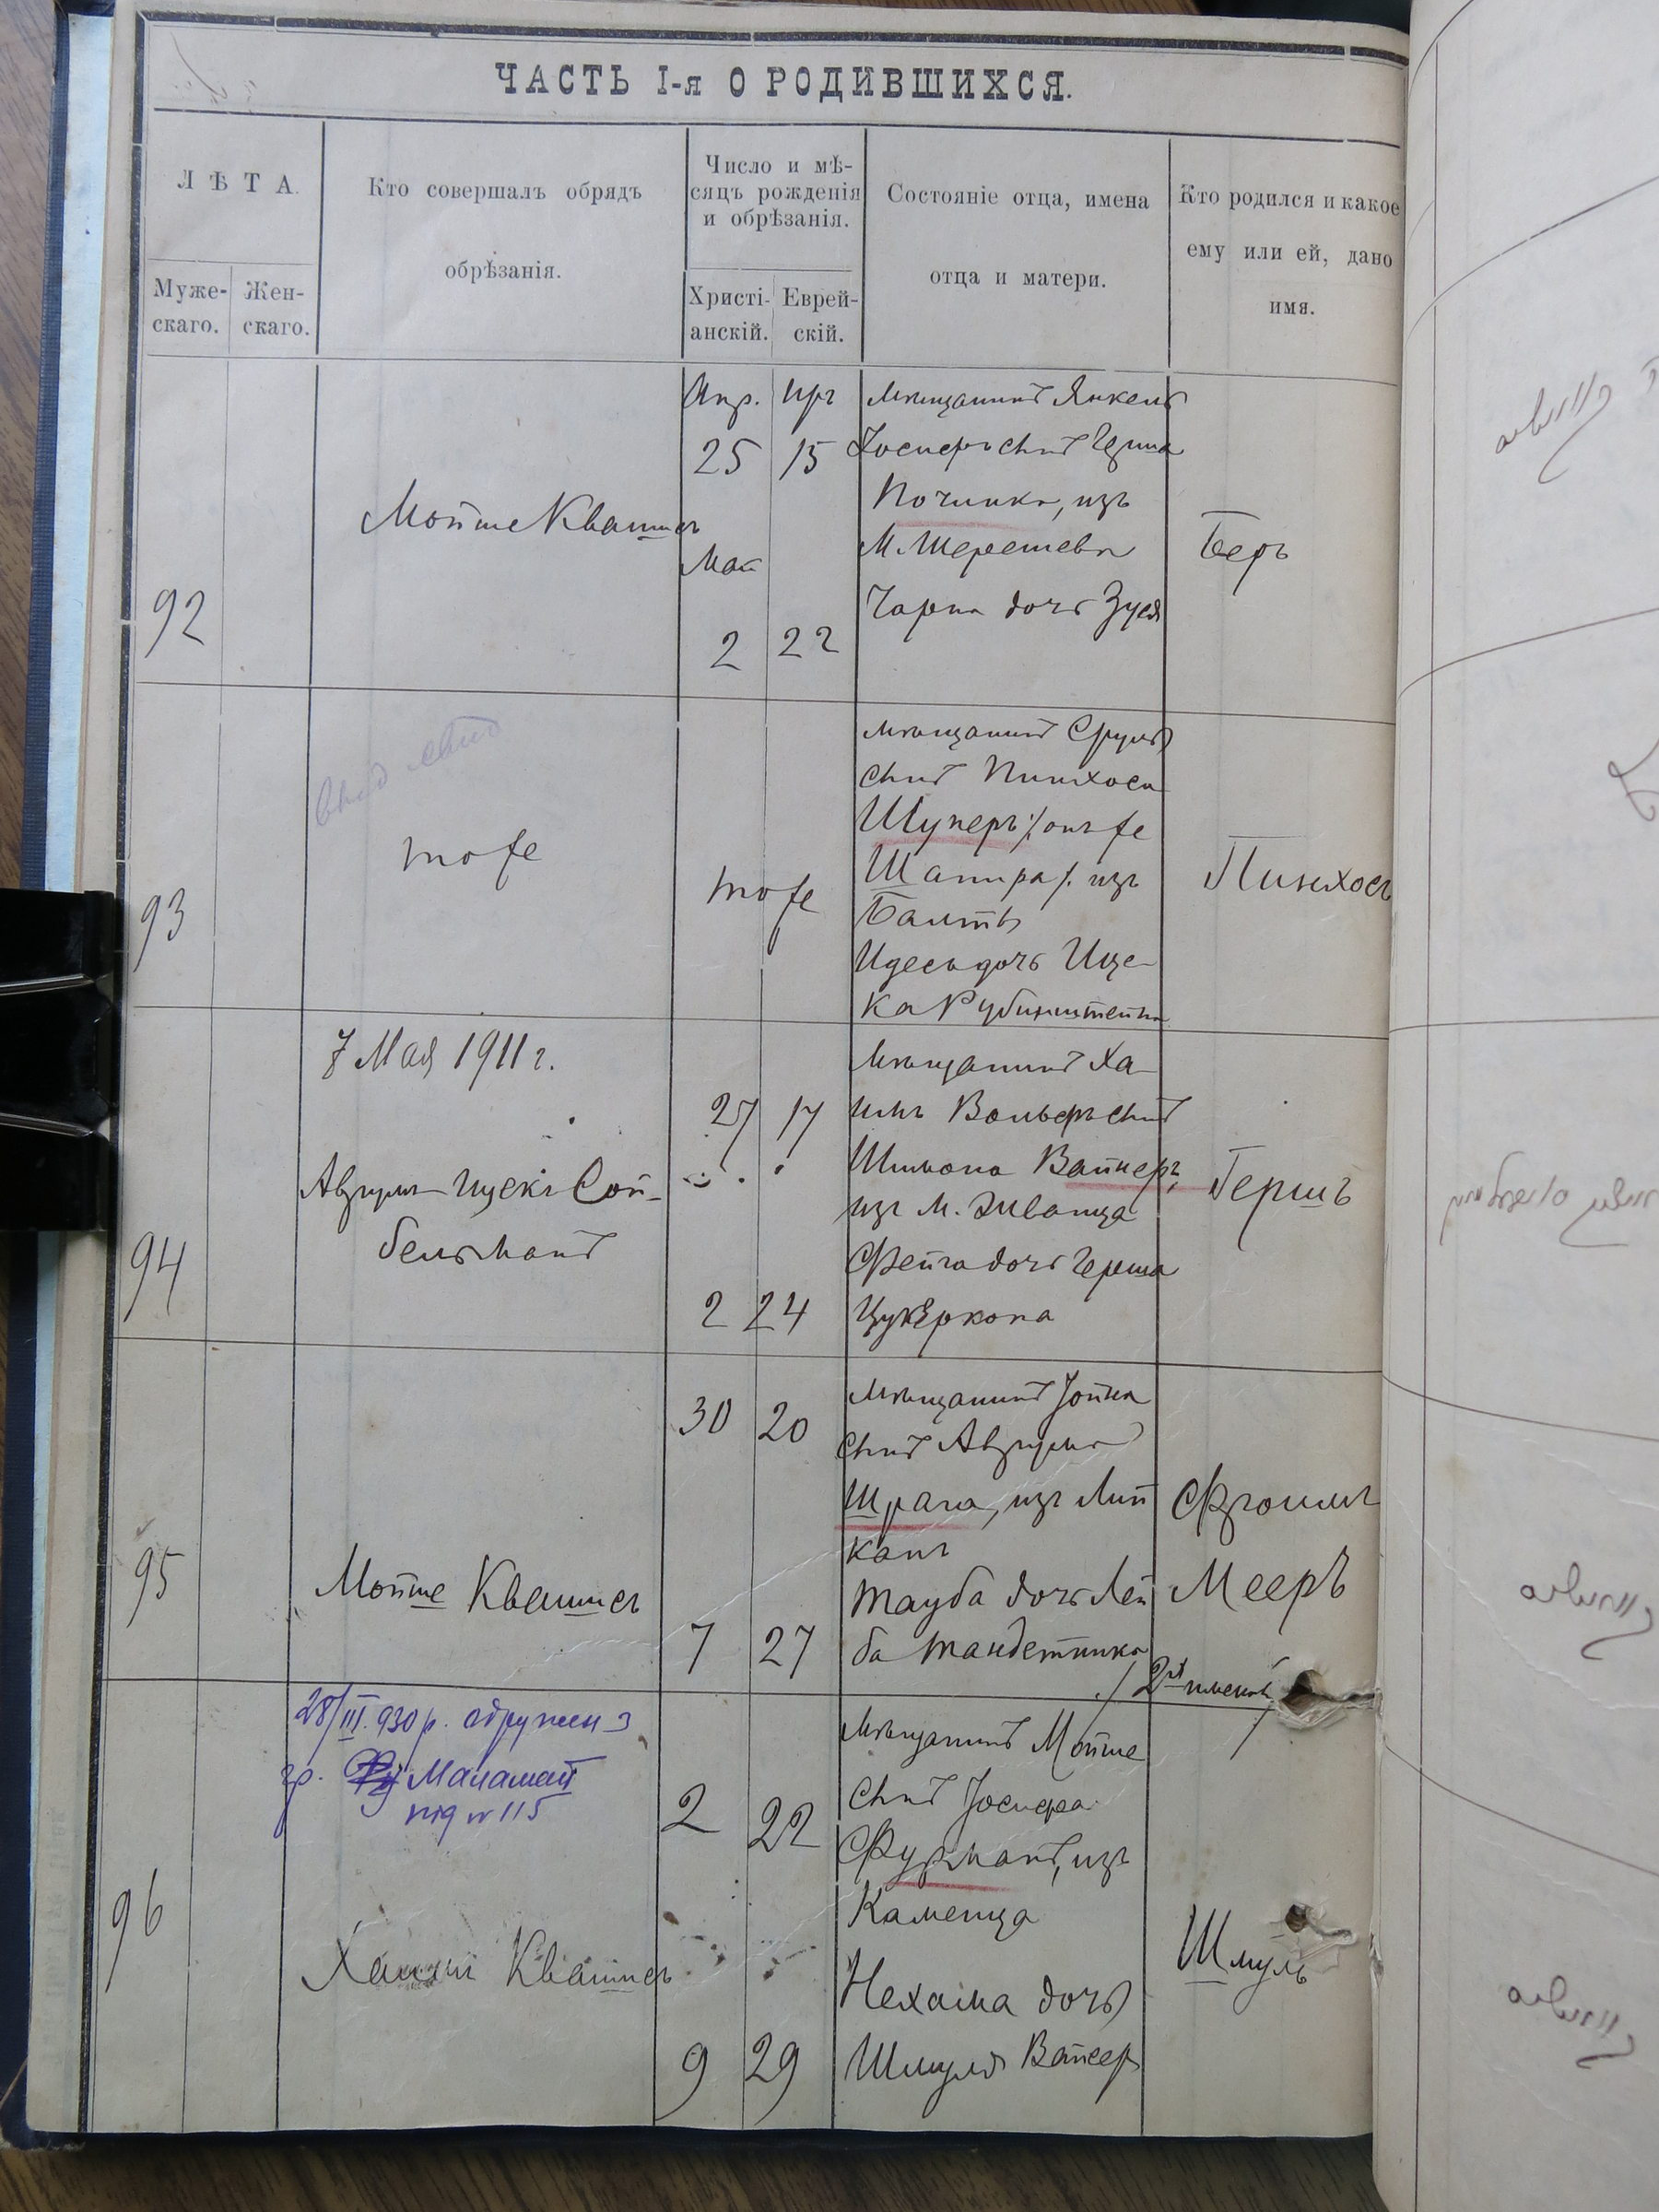 ЧАСТЬ I-я О РОДИВШИХСЯ.
ЛѢТА.
Муже-
скаго.
Жен-
скаго.
Кто совершалъ обрядъ
обрѣзанія.
Число и мѣ-
сяцъ рожденія
и обрѣзанія.
Христі-
анскій.
Еврей-
скій.
Состояніе отца, имена
отца и матери.
Кто родился и какое
ему или ей, дано
имя.
92
Мойше Квашисъ
Апр. Ир
25 15
Май
2 22
Мѣщанинъ Янкель
Іосифъ сынъ
Починка, изъ
М. Шерешева
Чарна дочь Зуся
Беръ
93
тоже
тоже
Мѣщанинъ Сруль
сынъ Пинхоса
Шуперъ /: онъ же
Шапира /: изъ
Балты
Идесь дочь Ице-
ка Рубинштейна
Пинхосъ
94
7 Мая 1911 г.
Аврумъ Ицекъ Сой-
бельманъ
27 17
2 24
Мѣщанинъ Ха
имъ Вольфъ сынъ
Шимона Вайнеръ,
изъ М. Жванца
Фейга дочь Герша
Цукеркопа
Гершъ
95
Мойше Квашисъ
30 20
7 27
Мѣщанинъ Іойна
сынъ Аврума
Шрага, изъ Лип
канъ
Тауба дочь Лей
ба Тандетника
Фроимъ
Мееръ
/ 2хъ именъ /
96
28/III. 930 р. одружен з
гр. Маламант
під № 115
Хаимъ Квашисъ
2 22
9 29
Мѣщанинъ Мойше
сынъ Іосифа
Фурманъ, изъ
Каменца
Нехама дочь
Шмуля Вайсер
Шмуль